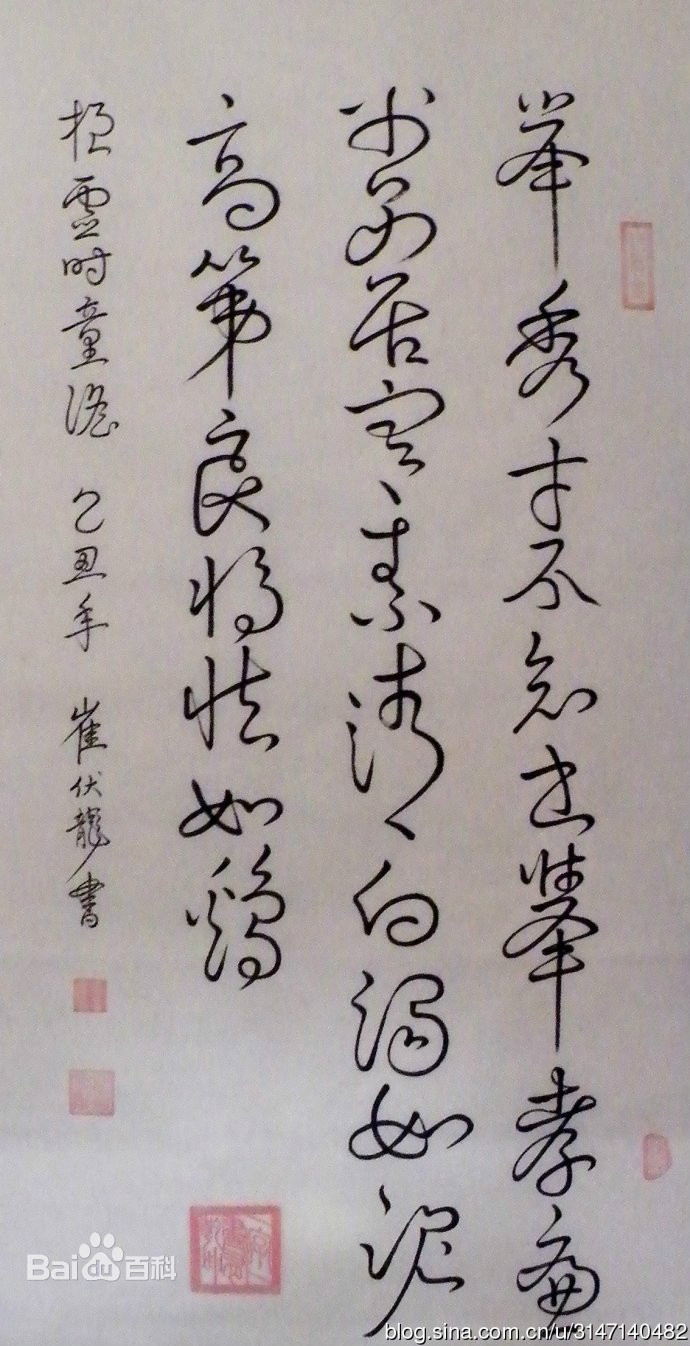 举秀才不知书孝廉
父别居寒素清白濁如泥
高第良将怯如鷄
桓霊时童謡 乙丑年 崔伏龍書
Bai百科
blog.sina.com.cn/u/3147140482